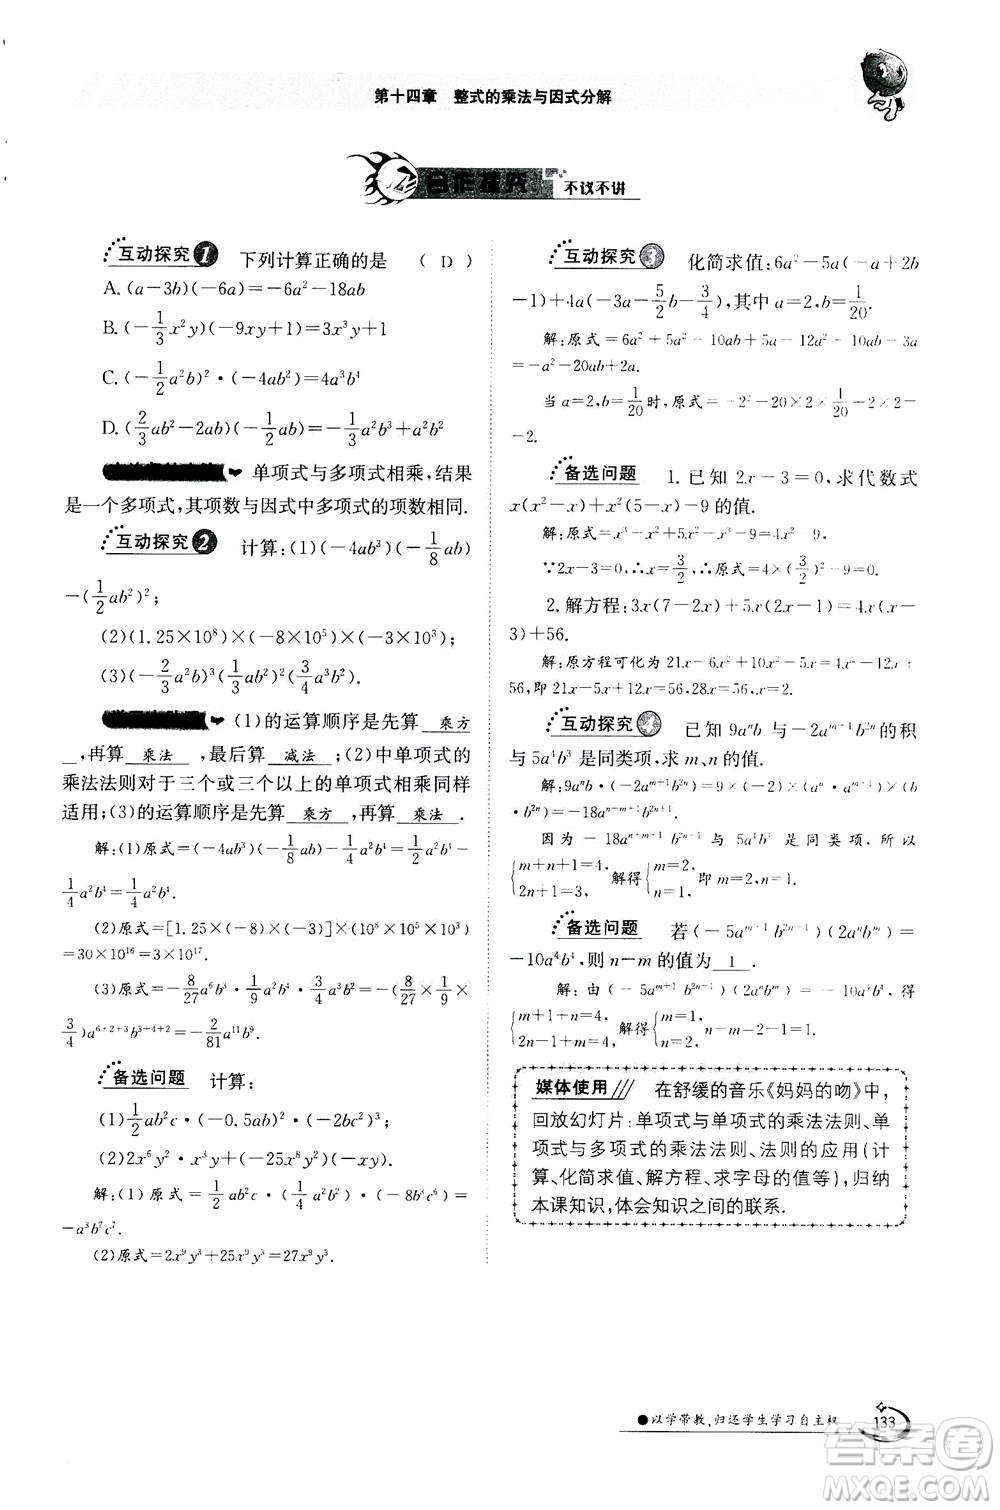 第十四章　整式的乘法与因式分解
合作探究 不议不讲
互动探究1 下列计算正确的是 （ D ）
A. (a-3b)(-6a)=-6a²-18ab
B. (-1/3 x²y)(-9xy+1)=3x³y+1
C. (-1/2 a²b)²·(-4ab²)=a³b⁴
D. (2/3 ab²-2ab)(-1/2 ab)=-1/3 a²b³+a²b²
单项式与多项式相乘,结果
是一个多项式,其项数与因式中多项式的项数相同.
互动探究2 计算:(1)(-4ab³)(-1/8 ab)
-(1/2 ab²)²;
(2)(1.25×10⁸)×(-8×10⁵)×(-3×10³);
(3)(-2/3 a²b)³·(1/3 ab²)²·(3/4 a³b²).
(1)的运算顺序是先算 乘方
,再算 乘法 ,最后算 减法 ;(2)中单项式的
乘法法则对于三个或三个以上的单项式相乘同样
适用;(3)的运算顺序是先算 乘方 ,再算 乘法 .
解:(1)原式=(-4ab³)(-1/8 ab)-1/4 a²b⁴=1/2 a²b⁴-
1/4 a²b⁴=1/4 a²b⁴.
(2)原式=[1.25×(-8)×(-3)]×(10⁸×10⁵×10³)
=30×10¹⁶=3×10¹⁷.
(3)原式=-8/27 a⁶b³·1/9 a²b⁴·3/4 a³b²=(-8/27×1/9×
3/4)a⁶⁺²⁺³b³⁺⁴⁺²=-2/81 a¹¹b⁹.
备选问题 计算:
(1)1/2 ab²c·(-0.5ab)²·(-2bc²)³;
(2)2x⁶y²·x³y+(-25x⁸y²)·(-xy).
解:(1)原式=1/2 ab²c·(1/4 a²b²)·(-8b³c⁶)=
-a³b⁷c⁷.
(2)原式=2x⁹y³+25x⁹y³=27x⁹y³.
互动探究3 化简求值:6a²-5a(-a+2b
-1)+4a(-3a-5/2 b-3/4),其中a=2,b=1/20.
解:原式=6a²+5a²-10ab+5a-12a²-10ab-3a
=-a²-20ab+2a.
当a=2,b=1/20时,原式=-2²-20×2×1/20-2×2=
-2.
备选问题 1.已知2x-3=0,求代数式
x(x²-x)+x²(5-x)-9的值.
解:原式=x³-x²+5x²-x³-9=4x² 9.
∵2x-3=0,∴x=3/2,∴原式=4×(3/2)²-9=0.
2.解方程:3x(7-2x)+5x(2x-1)=4x(x-
3)+56.
解:原方程可化为21x-6x²+10x²-5x=4x²-12x+
56,即21x-5x+12x=56,28x=56,x=2.
互动探究4 已知9aⁿb与-2aᵐ⁻¹b²ⁿ的积
与5a⁴b³是同类项,求m、n的值.
解:9aⁿb·(-2aᵐ⁺¹b²ⁿ)=9×(-2)×(aⁿ·aᵐ⁺¹)×(b
·b²ⁿ)=-18aⁿ⁺ᵐ⁺¹b²ⁿ⁺¹.
因为-18aⁿ⁺ᵐ⁺¹b²ⁿ⁺¹与5a⁴b³是同类项,所以
{m+n+1=4, 2n+1=3, 解得{m=2, n=1. 即m=2,n=1.
备选问题 若(-5aᵐ⁺¹b²ⁿ⁻¹)(2aⁿbᵐ)=
-10a⁴b⁴,则n-m的值为 1 .
解:由(-5aᵐ⁺¹b²ⁿ⁻¹)(2aⁿbᵐ)=-10a⁴b⁴,得
{m+1+n=4, 2n-1+m=4. 解得{m=1, n=2. 故n-m=2-1=1.
媒体使用 在舒缓的音乐《妈妈的吻》中,
回放幻灯片:单项式与单项式的乘法法则、单
项式与多项式的乘法法则、法则的应用(计
算、化简求值、解方程、求字母的值等),归纳
本课知识,体会知识之间的联系.
●以学带教,归还学生学习自主权 133
答案圈
MXQE.COM